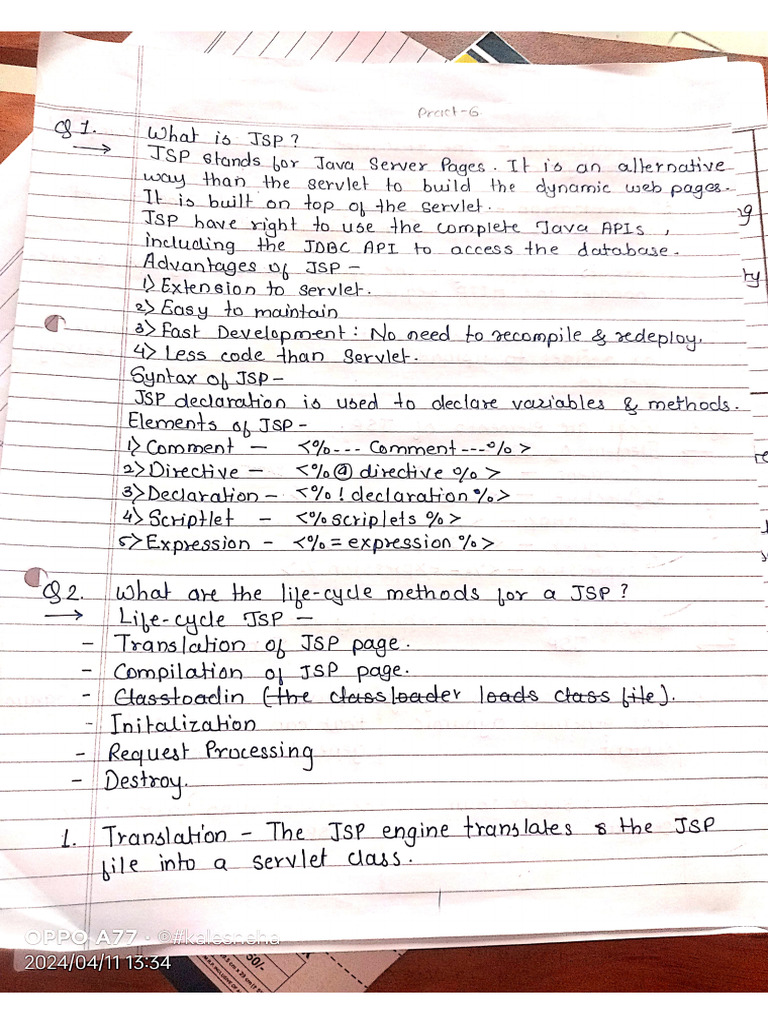 Pract-6
Q1. What is JSP?
→ JSP stands for Java Server Pages. It is an alternative
way than the servlet to build the dynamic web pages.
It is built on top of the servlet.
JSP have right to use the complete Java APIs,
including the JDBC API to access the database.
Advantages of JSP -
1> Extension to servlet.
2> Easy to maintain
3> Fast Development: No need to recompile & redeploy.
4> Less code than Servlet.
Syntax of JSP -
JSP declaration is used to declare variables & methods.
Elements of JSP -
1> Comment - <%--- Comment ---%>
2> Directive - <%@ directive %>
3> Declaration - <%! declaration %>
4> Scriptlet - <% scriplets %>
5> Expression - <%= expression %>
Q2. What are the life-cycle methods for a JSP?
→ Life-cycle JSP -
- Translation of JSP page.
- Compilation of JSP page.
- Classloadin (the classloader loads class file).
- Initalization
- Request Processing
- Destroy.
1. Translation - The JSP engine translates the JSP
file into a servlet class.
OPPO A77 · ©#kalesneha
2024/04/11 13:34
50/-